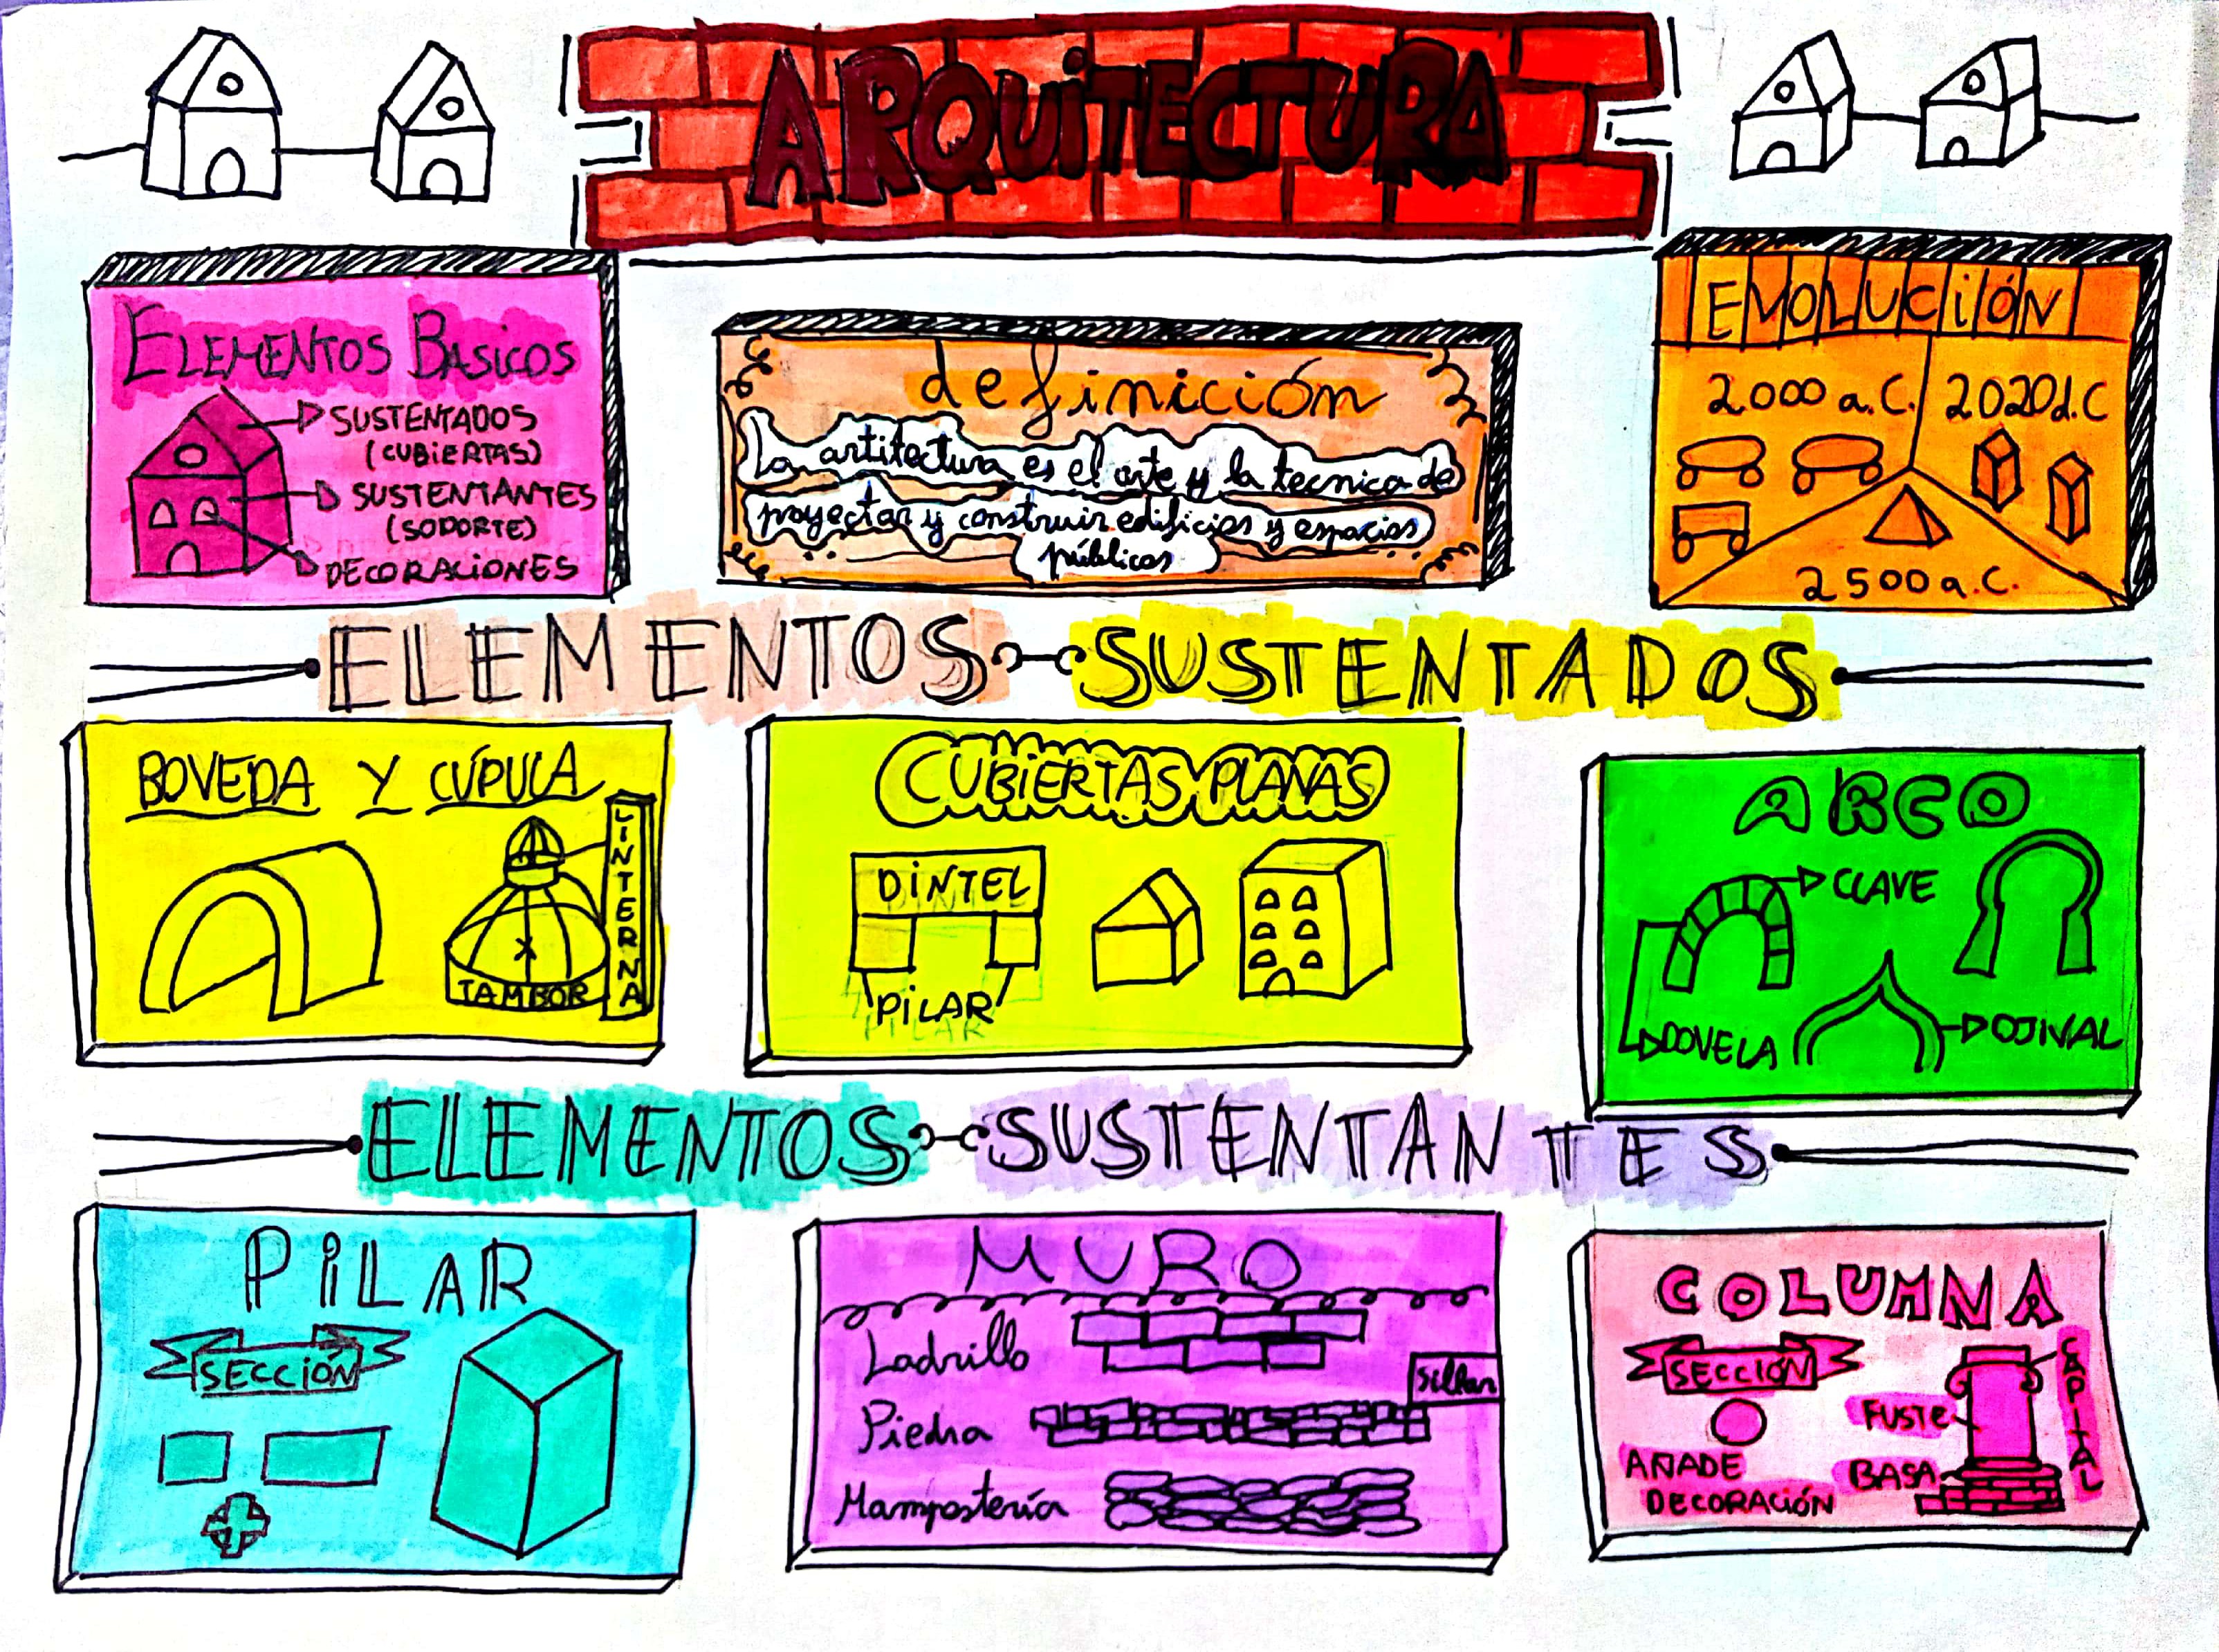 ARQUiTECTURA
ELEMENTOS BASICOS
SUSTENTADOS
(CUBiERTAS)
SUSTENTANTES
(SOPORTE)
DECORACIONES
definición
La artitectura es el arte y la tecnica de
proyectar y construir edificios y espacios
públicos
EVOLUCiÓN
2.000 a.C.
2020d.C
2500a.C.
ELEMENTOS SUSTENTADOS
BOVEDA Y CÚPULA
LINTERNA
TAMBOR
CUBiERTAS PLANAS
DiNTEL
PiLAR
ARCO
CLAVE
DOVELA
OJIVAL
ELEMENTOS SUSTENTANTES
PiLAR
SECCIÓN
MURO
Ladrillo
Sillar
Piedra
Mampostería
COLUMNA
SECCIÓN
CAPITAL
FUSTE
BASA
AÑADE
DECORACIÓN